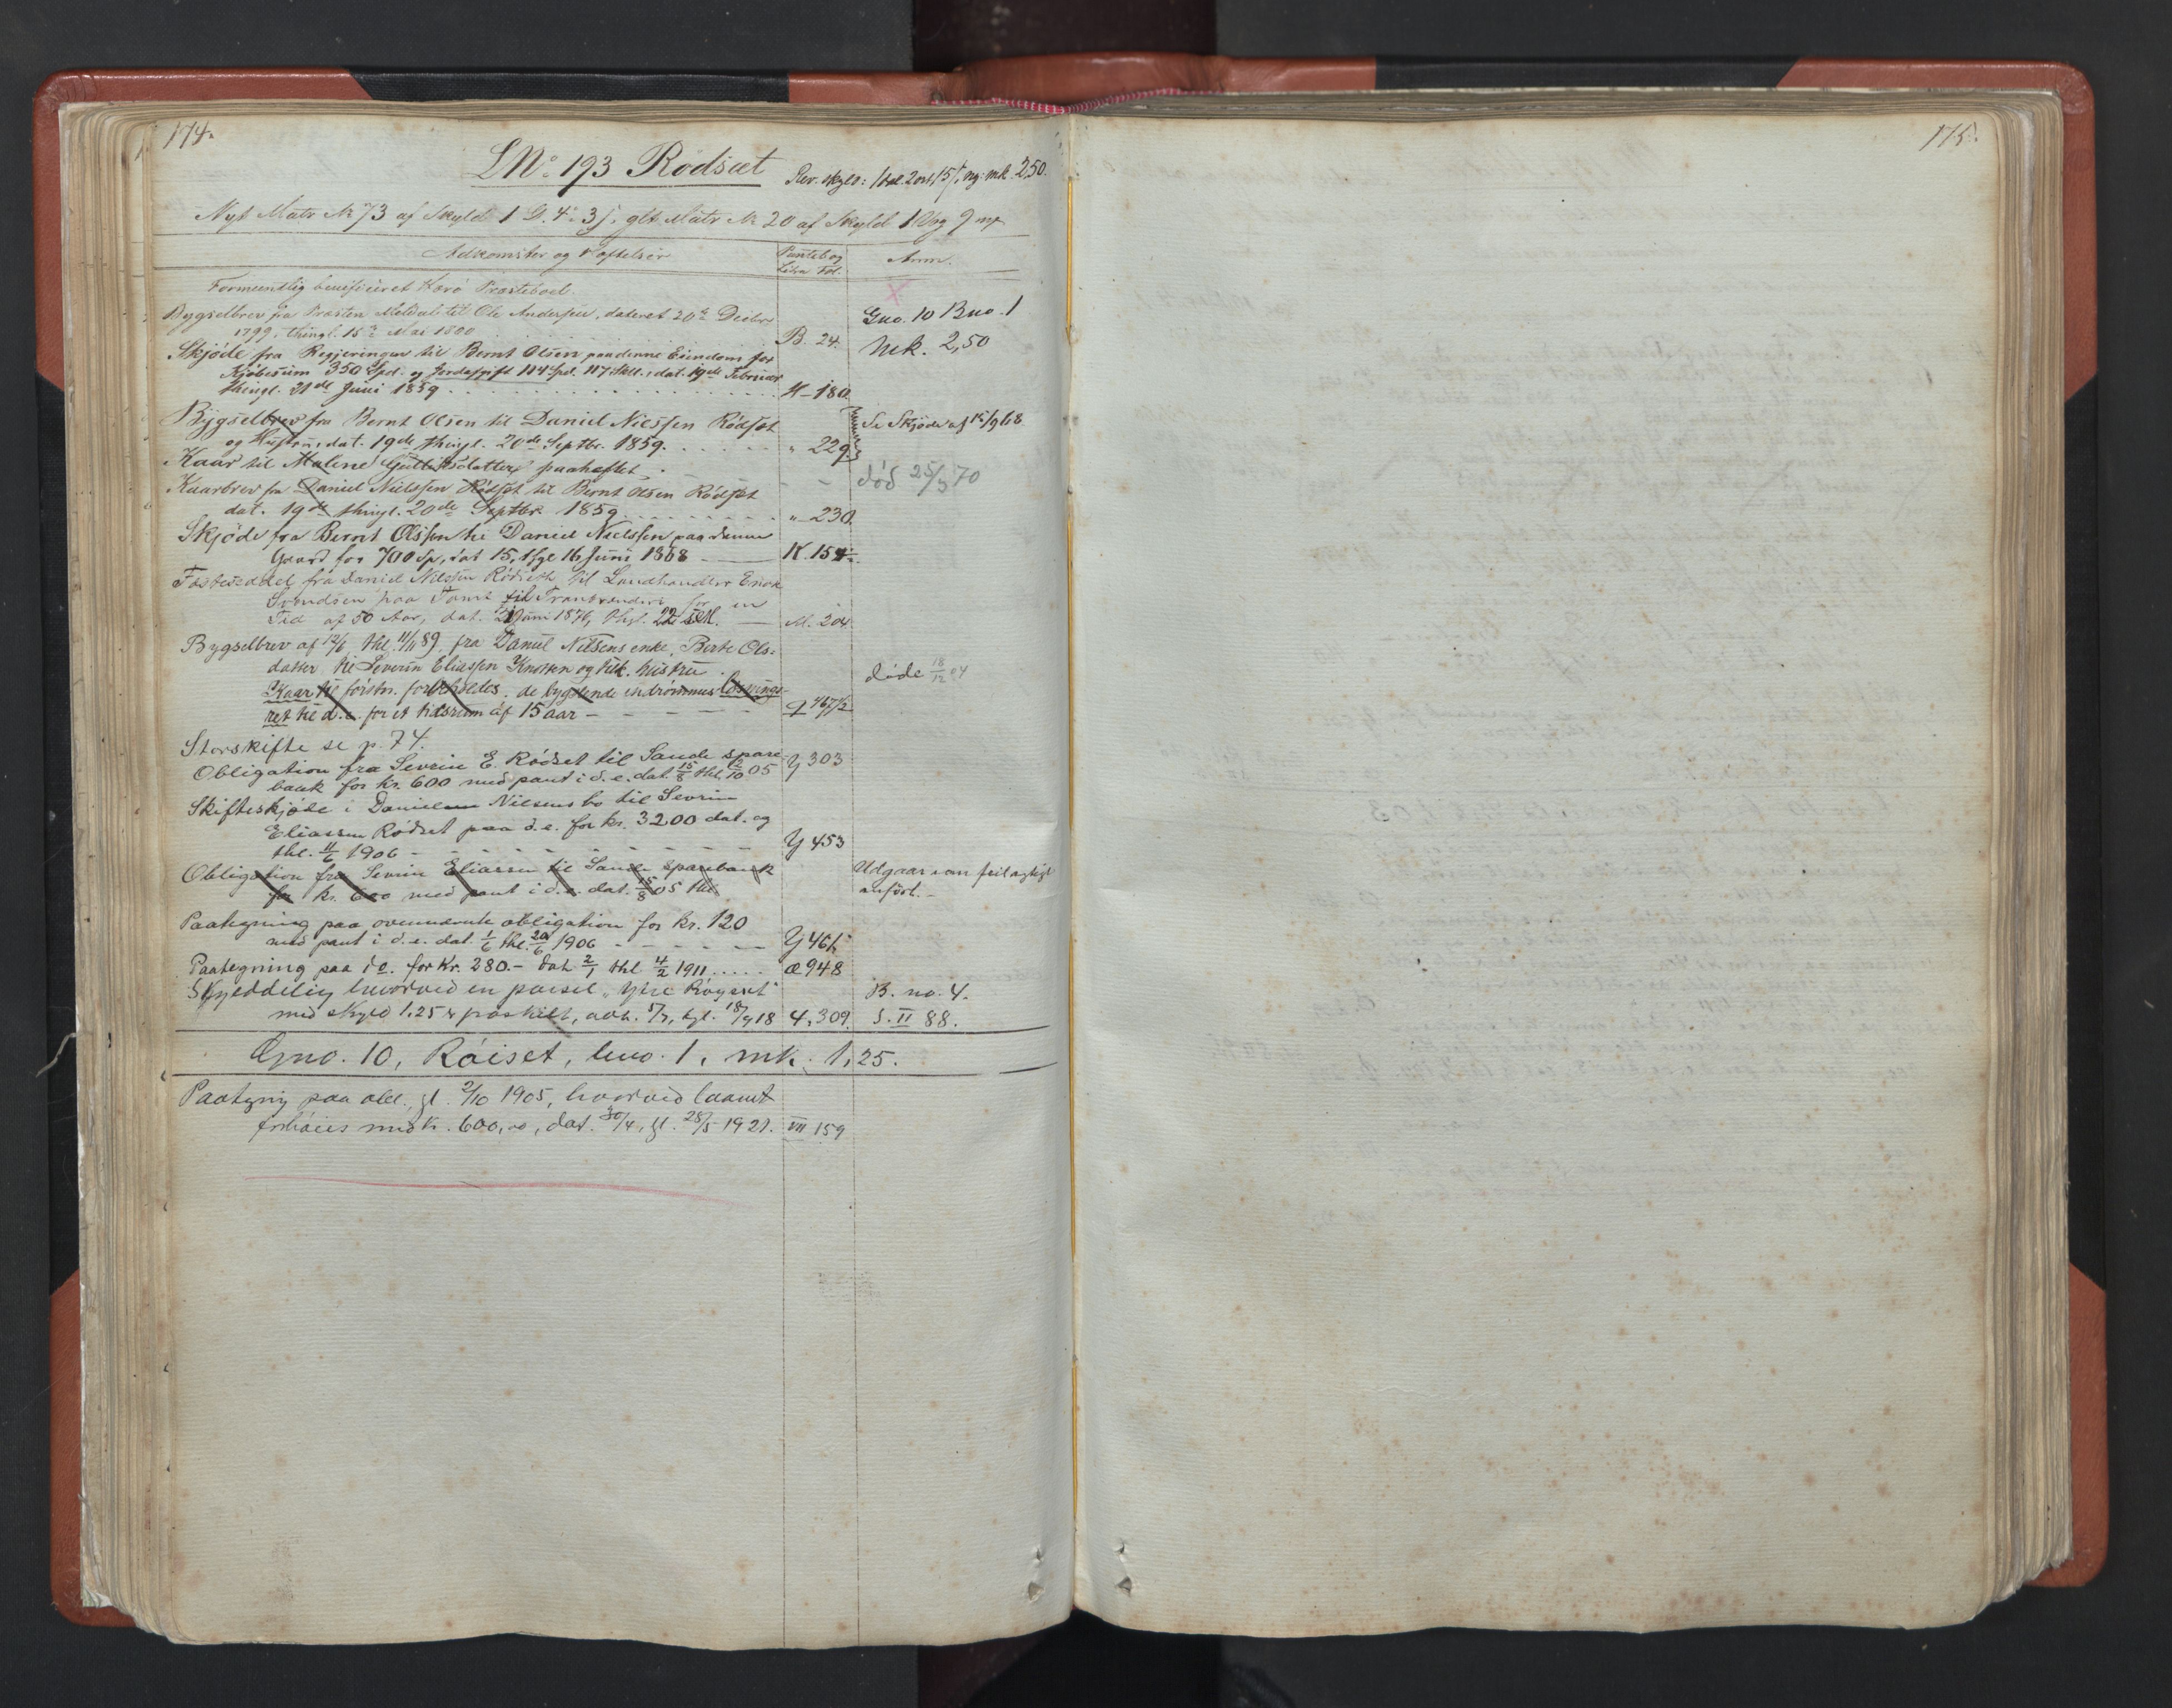 174.
LNo 193 Rødsæt Rev. skyld: 1 dal. 2 ort 15 s, ny: mk. 2,50.
Nyt Matr No 73 af Skyld 1 D. 4 3 s, glt. Matr No 20 af Skyld 1 Vog 9 mk
Adkomster og Hæftelser Pantebog Anm.
Litra Fol.
Formentlig benificeret Herø Præstebol.
Bygselbrev fra Præsten Meldal til Ole Andersen, dateret 20de Decbr
1799, thingl. 15de Mai 1800 B. 24. Gno. 10 Bno. 1
Mk. 2,50
Skjøde fra Regjeringen til Bernt Olsen paa denne Eiendom for
Kjøbesum 350 Spd. og Jordafgift 114 Spd. 117 Skl., dat. 19de Februar
thingl. 21de Juni 1859 H - 180
Bygselbrev fra Bernt Olsen til Daniel Nielsen Rødset Se Skjøde af 15/6 68
og Hustru, dat. 19de thingl. 20de Septbr. 1859. " 229
Kaar til Malene Guttormsdatter paaheftet. - - død 25/3 70
Kaarbrev fra Daniel Nielssen Rødset til Bernt Olsen Rødset
dat. 19de thingl. 20de Septbr. 1859 " - 230.
Skjøde fra Bernt Olssen til Daniel Nielssen paa denne
Gaard for 700 Sp, dat 15, thgl 16 Juni 1868 K. 154.
Fæsteseddel fra Daniel Nilssen Rødseth til Landhandler Enok
Svendsen paa Tomt til Tranbrænderi for en
Tid af 50 Aar, dat. 21 Juni 1876, thgl. 22 M. 204
Bygselbrev af 12/6 thl. 11/11 89 fra Daniel Nilsens enke, Berte Ols:
datter til Severin Eliassen Knotten og tilk. hustru.
Kaar til førstn. forbeholdes. de bygslende indrømmes løsnings- døde 18/12 04
ret til d. e. for et tidsrum af 15 aar - - - q 467/2
Storskifte se p. 74.
Obligation fra Sevrin E. Rødset til Sande spare-
bank for kr. 600 med pant i d. e. dat. 15/8 thl. 2/10 05 Y 303
Skifteskjøte i Daniel Nilsens bo til Sevrin
Eliassen Rødset paa d. e. for kr. 3200 dat. og
thl. 11/6 1906 - - - Y 453
Obligation fra Sevrin Eliassen til Sande sparebank Udgaar som feilagtigt
for kr. 600 med pant i d. e. dat. 15/8 05 thl. anført.
Paategning paa ovennævnte obligation for kr. 120
med pant i d. e. dat. 1/6 thl. 20/6 1906 - - - Y 461
Paategning paa do. for Kr. 280.- dat. 2/1 thl. 4/2 1911 ..... æ 948
Skylddeling hvorved en parsel "Ytre Røyset" B. no. 4.
med skyld 1.25 er fraskilt, avh. 5/7, tgl. 18/9 18 4, 309. S. II 88.
Gno. 10, Røiset, bno. 1, mk. 1,25.
Paategn paa obl. gl. 2/10 1905, hvorved laanet
forhøies med kr. 600,00, dat. 30/4, gl. 28/5 1921. VII 159
175.